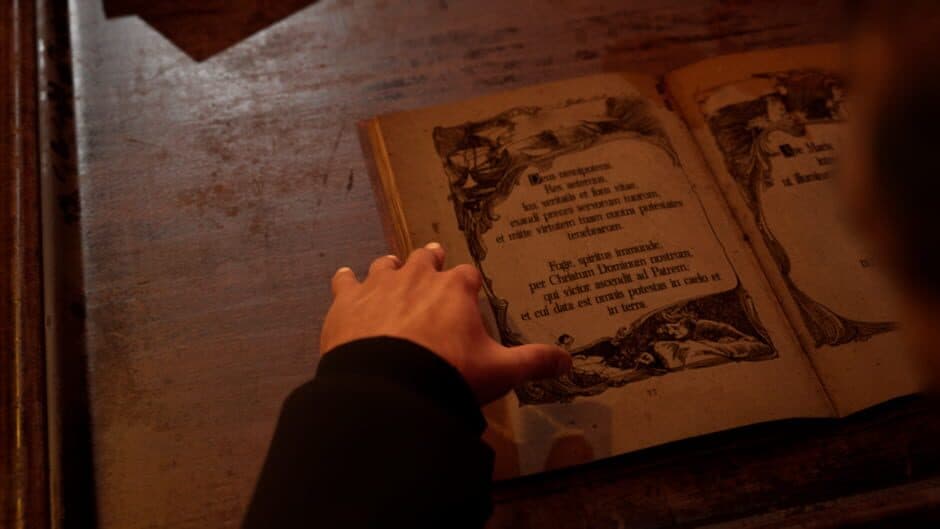 Deus omnipotens,
Rex aeternus,
veritatis et vitae,
exaudi preces servorum tuorum,
et mitte virtutem tuam contra potestates
tenebrarum.
Fuge, spiritus immunde,
per Christum Dominum nostrum,
qui victor ascendit ad Patrem;
et cui data est omnis potestas in caelo et
in terra.
ut